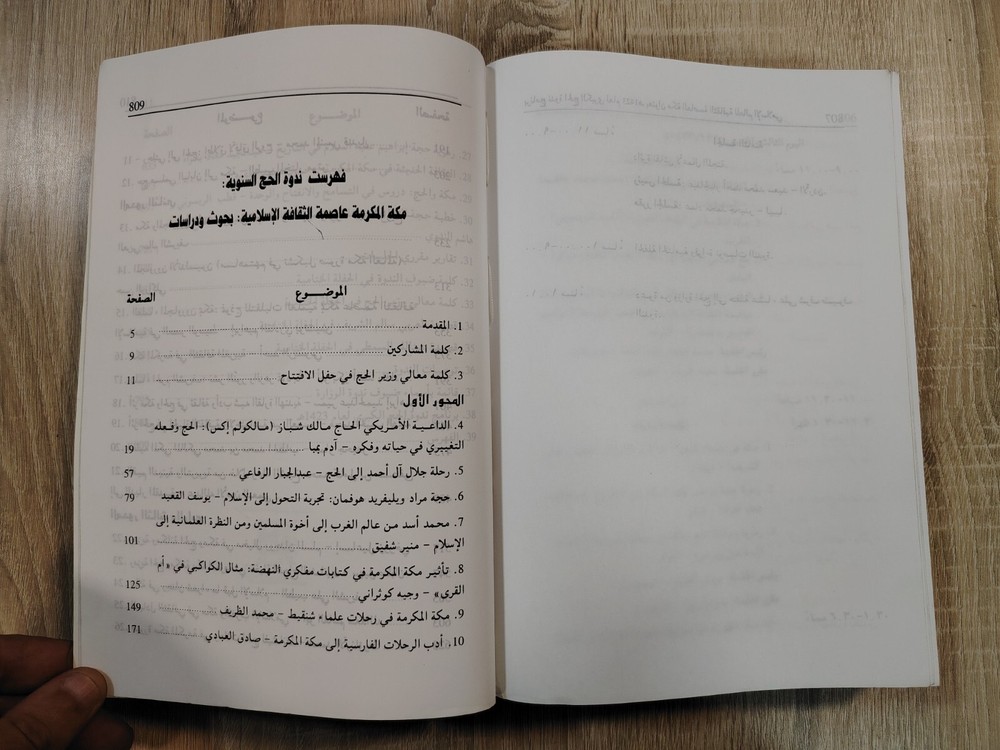 809
فهرست ندوة الحج السنوية:
مكة المكرمة عاصمة الثقافة الإسلامية: بحوث ودراسات
الموضـــــوع الصفحة
1. المقدمة ........ 5
2. كلمة المشاركين ........ 9
3. كلمة معالي وزير الحج في حفل الافتتاح ........ 11
المحور الأول
4. الداعيـة الأمـريكي الحـاج مـالك شـبـاز (مـالكولم إكس): الحج وفـعله
التغييري في حياته وفكره – آدم بمبا ........ 19
5. رحلة جلال آل أحمد إلى الحج – عبدالجبار الرفاعي ........ 57
6. حجة مراد ويليفريد هوفمان: تجربة التحول إلى الإسلام – يوسف القعيد 79
7. محمـد أسـد مـن عالم الغرب إلى أخوة المسلمين ومن النظرة العلمانية إلى
الإسلام – منير شفيق ........ 101
8. تأثيـر مكة المكرمة في كتابات مفكري النهضة: مثال الكواكبي في «أم
القرى» – وجيه كوثراني ........ 125
9. مكة المكرمة في رحلات علماء شنقيط – محمد الظريف ........ 149
10. أدب الرحلات الفارسية إلى مكة المكرمة – صادق العبادي ........ 171